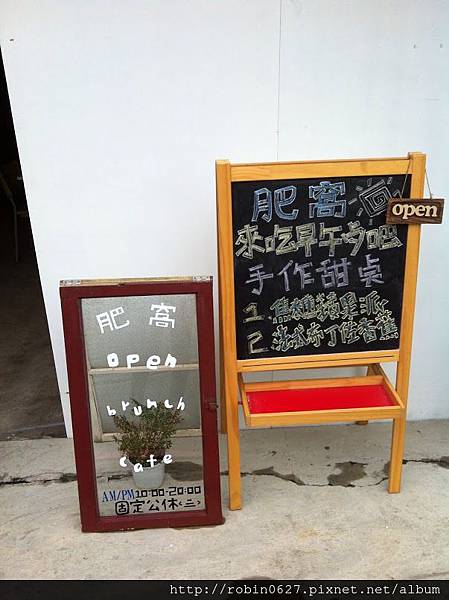 肥窩
open
來吃早午ㄘ吧
手作甜桌
1. 焦糖蘋果派
2. 法式布丁佐香蕉
肥窩
open
brunch
cafe
AM/PM 10:00-20:00
固定公休<三>
http://robin0627.pixnet.net/album